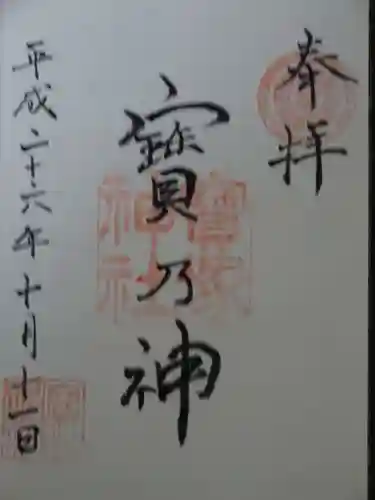 奉拝
寳乃神
平成二十六年十月十一日